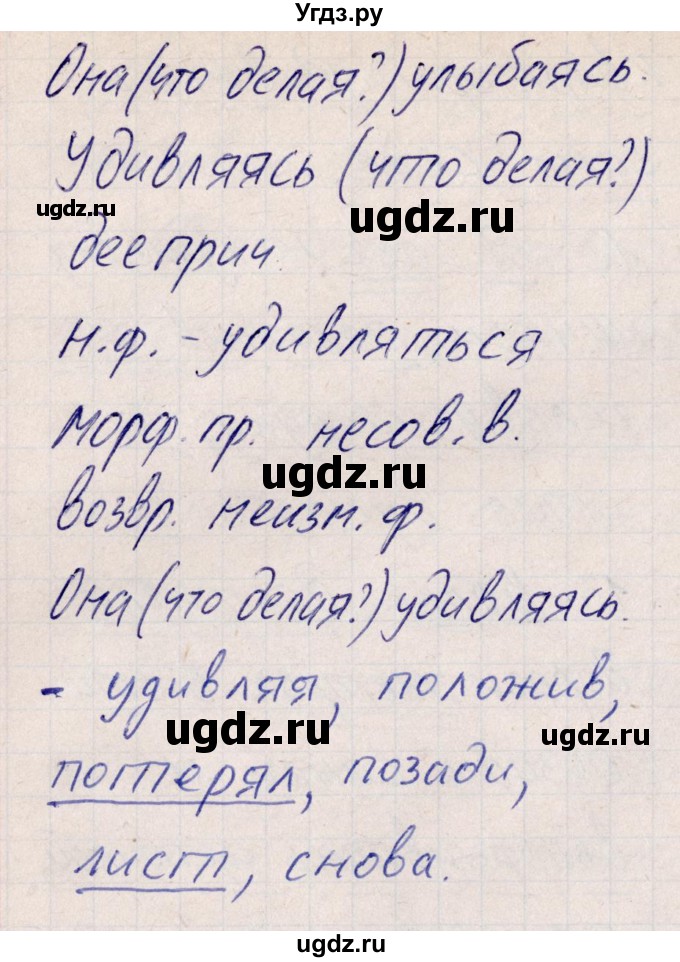 Угдз.ру
Она (что делая?) улыбаясь.
Удивляясь (что делая?)
ugdz.ru ugdz.ru
дееприч.
н.ф. - удивляться
морф. пр. несов. в.
ugdz.ru
возвр. неизм. ф.
Она (что делая?) удивляясь.
- удивляя, положив,
ugdz.ru ugdz.ru
потерял, позади,
лист, снова.
ugdz.ru